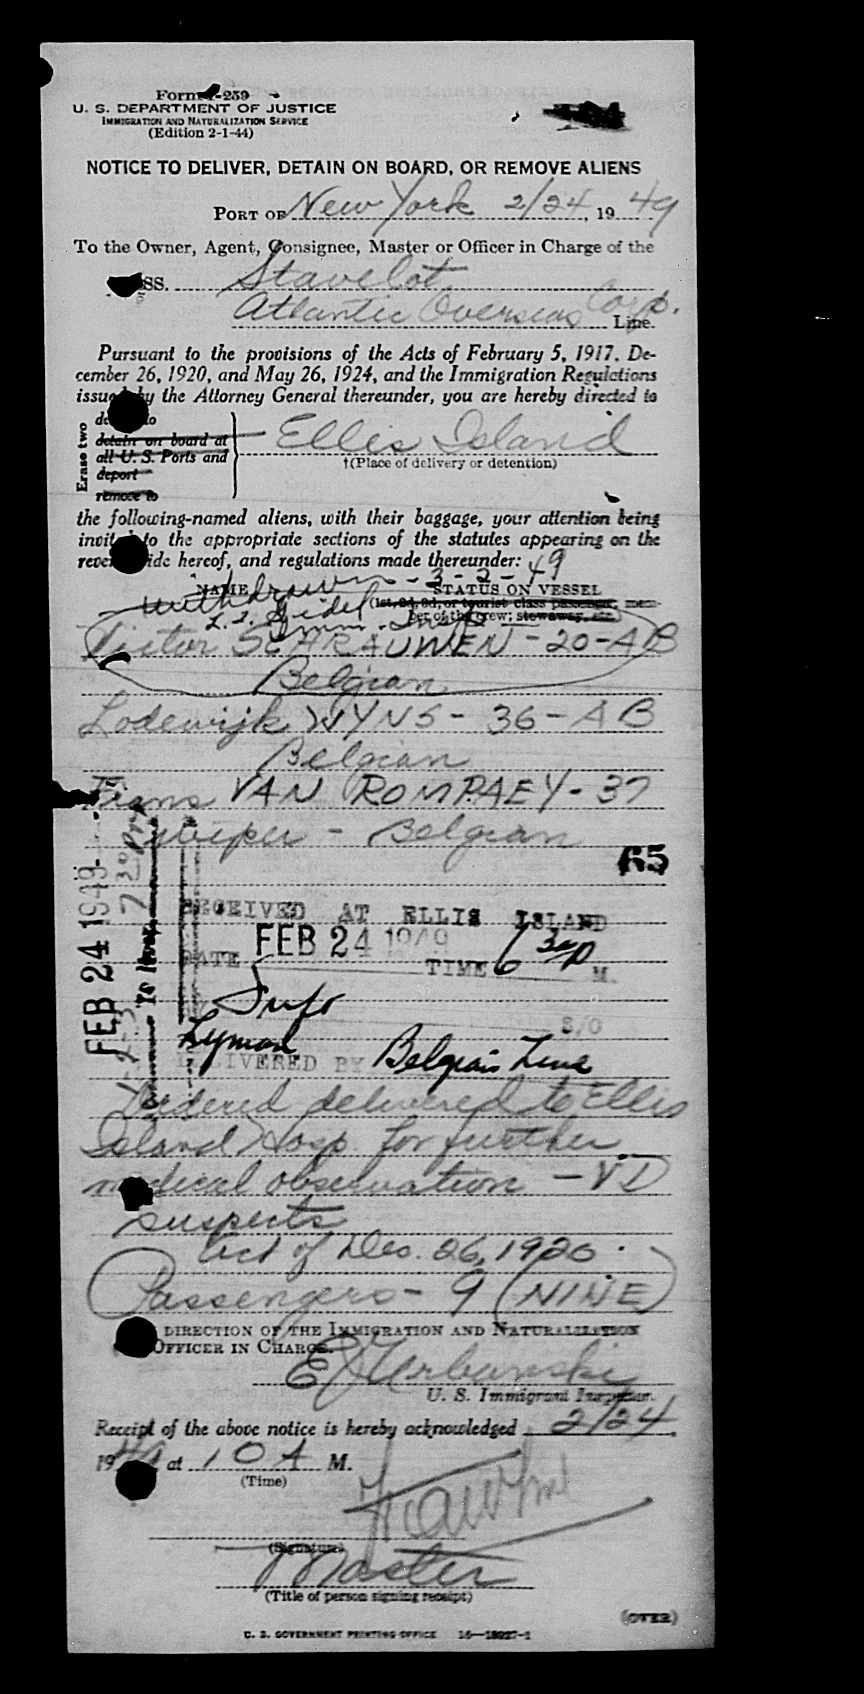 Form I-259
U. S. DEPARTMENT OF JUSTICE
IMMIGRATION AND NATURALIZATION SERVICE
(Edition 2-1-44)
NOTICE TO DELIVER, DETAIN ON BOARD, OR REMOVE ALIENS
PORT OF New York 2/24, 1949
To the Owner, Agent, Consignee, Master or Officer in Charge of the
SS. Stavelot
Atlantic Overseas Corp. Line.
Pursuant to the provisions of the Acts of February 5, 1917, De-
cember 26, 1920, and May 26, 1924, and the Immigration Regulations
issued by the Attorney General thereunder, you are hereby directed to
Erase two
detain on board at
all U. S. Ports and
deport
remove to
Ellis Island
†(Place of delivery or detention)
the following-named aliens, with their baggage, your attention being
invited to the appropriate sections of the statutes appearing on the
reverse side hereof, and regulations made thereunder:
withdrawn - 3-2-49
NAME STATUS ON VESSEL
(1st, 2d, 3d, or tourist class passenger, mem-
ber of the crew; stowaway, etc.)
Imm. Insp
Victor SCHRAUWEN - 20 - AB
Belgian
Lodewijk WYNS - 36 - AB
Belgian
Frans VAN ROMPAEY - 37
wiper - Belgian
65
FEB 24 1949
7 30 PM
RECEIVED AT ELLIS ISLAND
DATE FEB 24 1949
TIME 6 30 P M.
S/O
Lyman
DELIVERED BY Belgian Line
Ordered delivered to Ellis
Island Hosp. for further
medical observation - VD
suspects
Act of Dec. 26, 1920.
Passengers - 9 (NINE)
DIRECTION OF THE IMMIGRATION AND NATURALIZATION
OFFICER IN CHARGE.
E J Urbanski
U. S. Immigrant Inspector.
Receipt of the above notice is hereby acknowledged 2/24,
1949 at 10 A M.
(Time)
(Signature)
Master
(Title of person signing receipt)
(OVER)
U. S. GOVERNMENT PRINTING OFFICE 16—18927-1